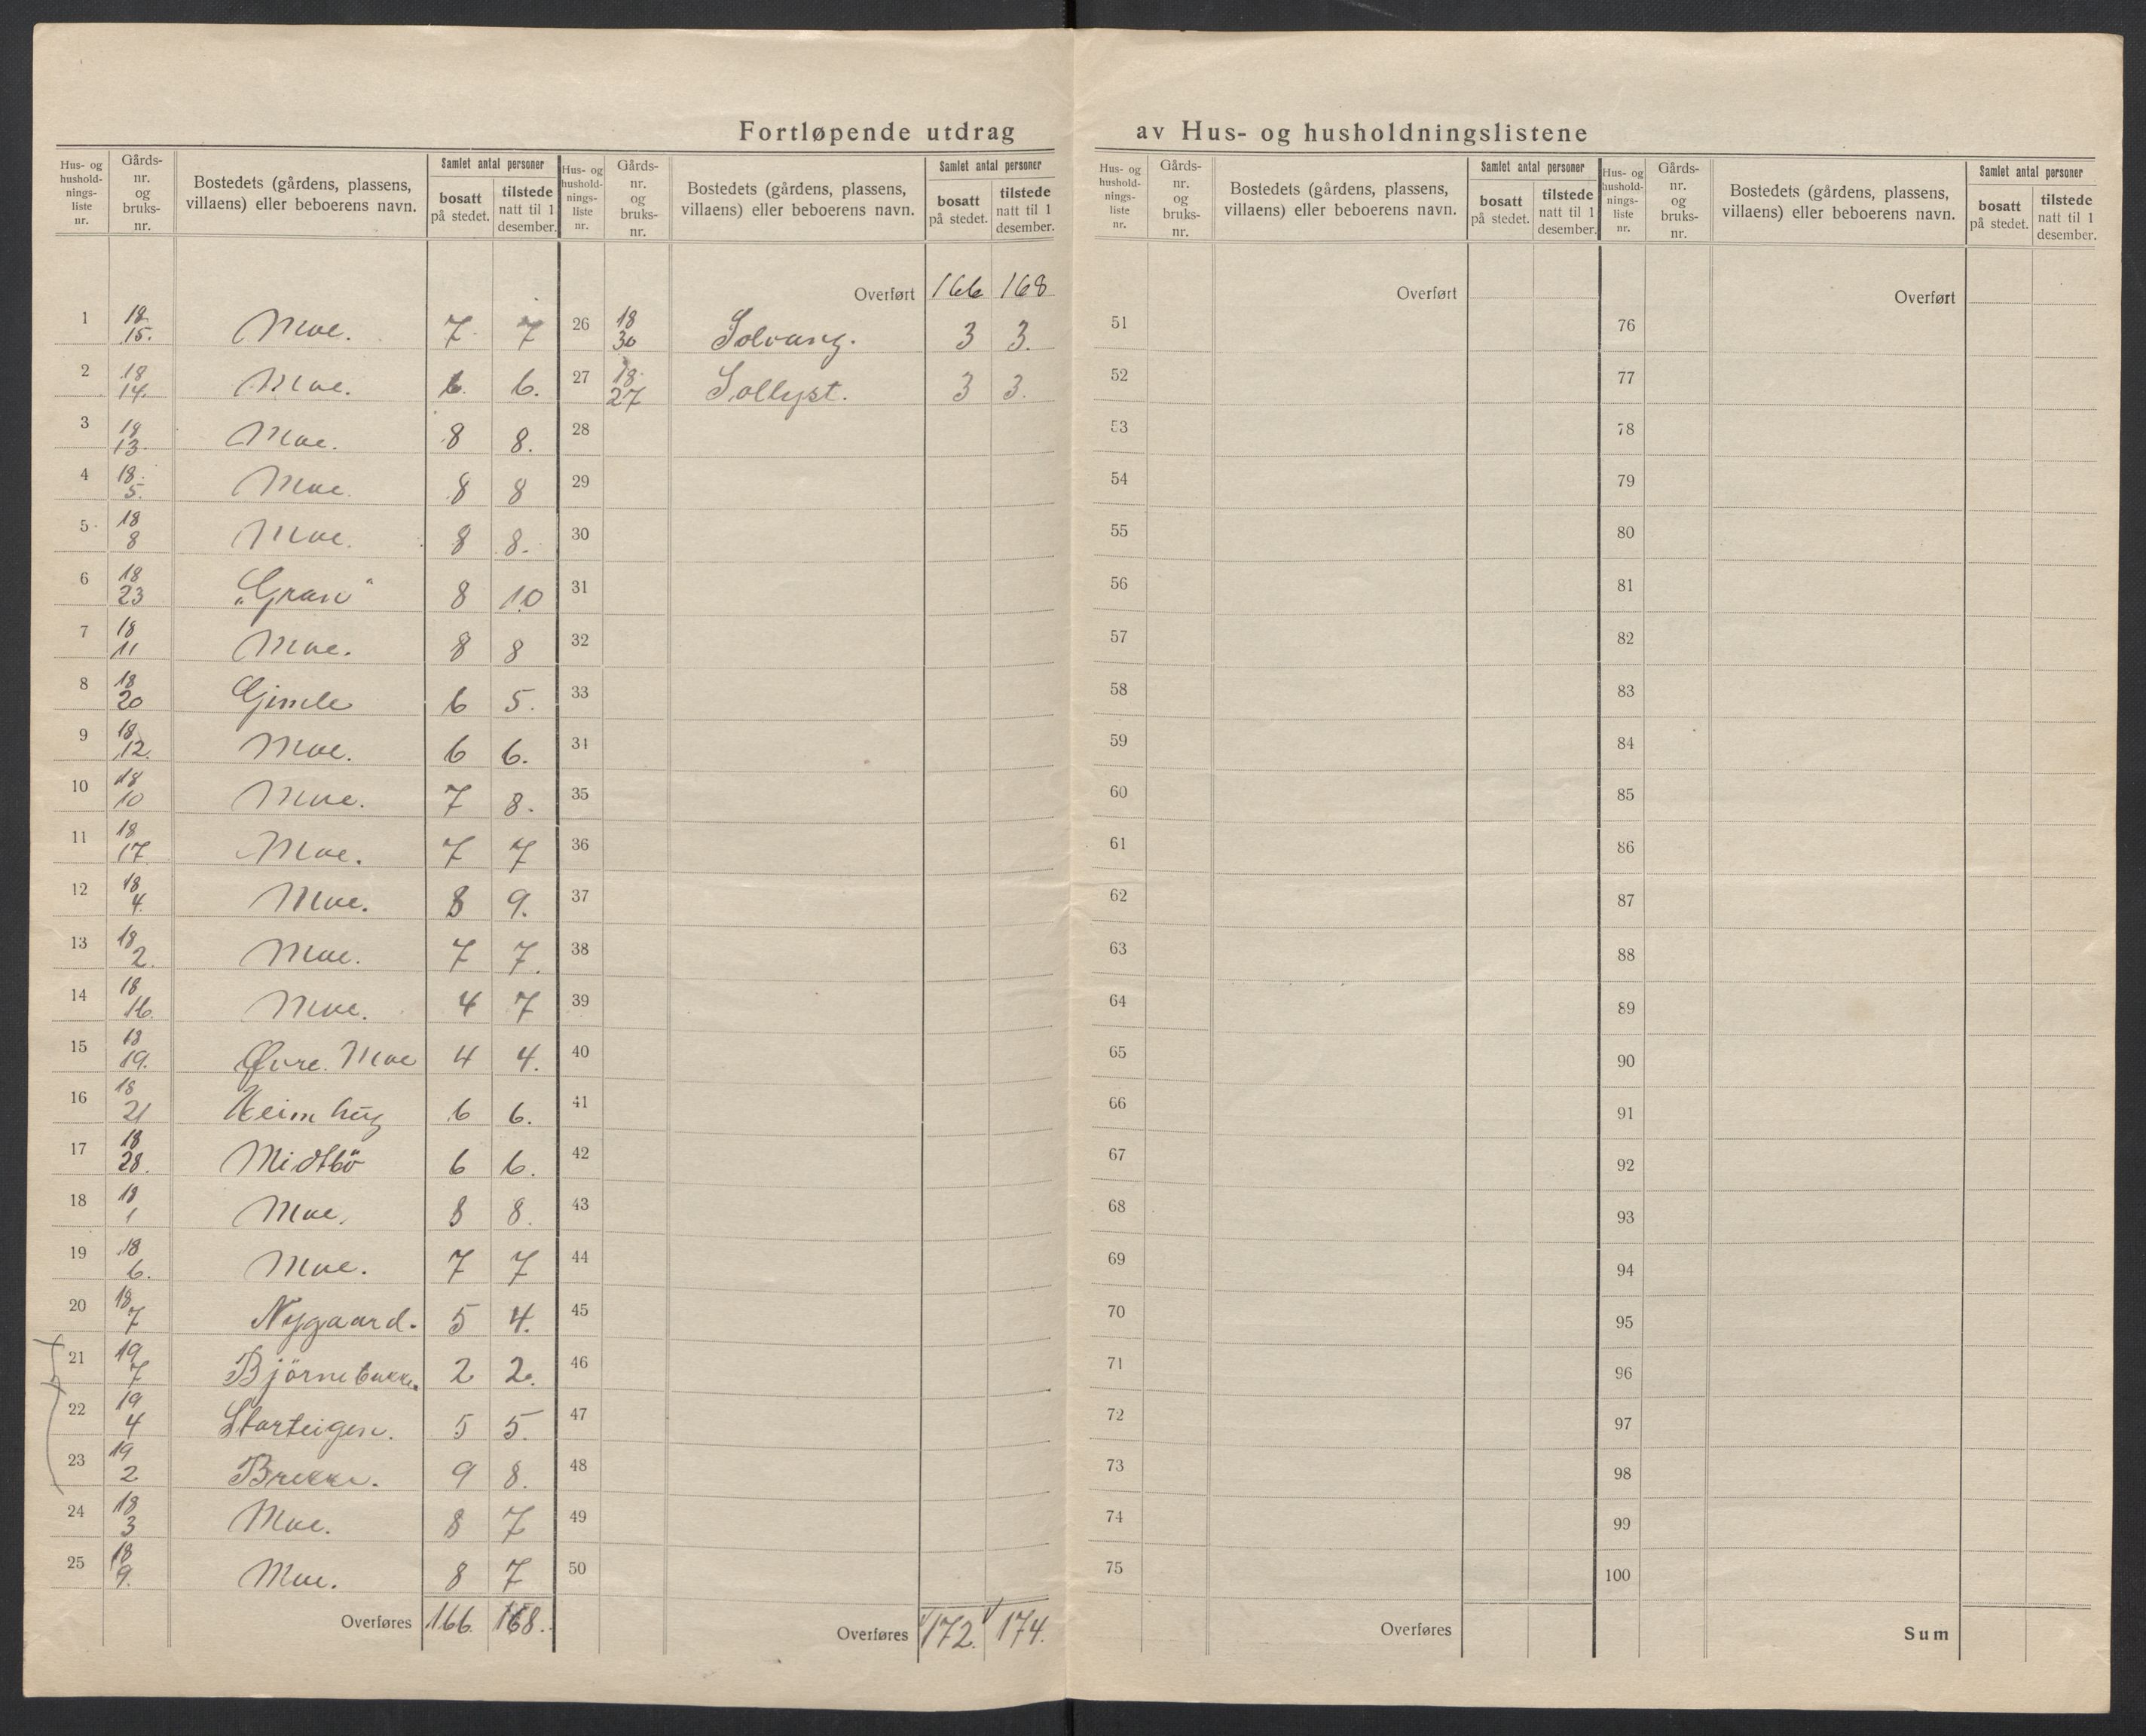 Fortløpende utdrag av Hus- og husholdningslistene
Hus- og husholdningsliste nr. | Gårds-nr. og bruks-nr. | Bostedets (gårdens, plassens, villaens) eller beboerens navn. | Samlet antal personer | bosatt på stedet. | tilstede natt til 1 desember.
1 | 18 15. | Moe. | 7 | 7
2 | 18 14. | Moe. | 6. | 6.
3 | 18 13. | Moe. | 8 | 8.
4 | 18. 5. | Moe. | 8 | 8
5 | 18 8 | Moe. | 8 | 8.
6 | 18 23 | „Gran“ | 8 | 10
7 | 18 11 | Moe. | 8 | 8
8 | 18 20 | Gimle | 6 | 5.
9 | 18 12. | Moe. | 6 | 6.
10 | 18 10 | Moe. | 7 | 8.
11 | 18 17 | Moe. | 7 | 7
12 | 18 4. | Moe. | 8 | 9.
13 | 18 2. | Moe. | 7 | 7.
14 | 18 16. | Moe. | 4 | 7
15 | 18 19. | Øvre. Moe | 4 | 4.
16 | 18 21 | Heimhug | 6 | 6.
17 | 18 28. | Midtbö | 6 | 6.
18 | 18 1 | Moe. | 8 | 8.
19 | 18 6. | Moe. | 7 | 7
20 | 18 7 | Nygaard. | 5 | 4.
21 | 19 7 | Björnebakke. | 2 | 2.
22 | 19 4 | Storteigen. | 5 | 5.
23 | 19 2 | Brekke. | 9 | 8.
24 | 18 3 | Moe. | 8 | 7
25 | 18 9. | Moe. | 8 | 7
Overføres | 166. | 168.
Hus- og husholdningsliste nr. | Gårds-nr. og bruks-nr. | Bostedets (gårdens, plassens, villaens) eller beboerens navn. | Samlet antal personer | bosatt på stedet. | tilstede natt til 1 desember.
Overført | 166 | 168
26 | 18 30 | Solvang. | 3 | 3.
27 | 18. 27 | Sollyst. | 3 | 3.
28
29
30
31
32
33
34
35
36
37
38
39
40
41
42
43
44
45
46
47
48
49
50
Overføres | 172. | 174.
Hus- og husholdningsliste nr. | Gårds-nr. og bruks-nr. | Bostedets (gårdens, plassens, villaens) eller beboerens navn. | Samlet antal personer | bosatt på stedet. | tilstede natt til 1 desember.
Overført
51
52
53
54
55
56
57
58
59
60
61
62
63
64
65
66
67
68
69
70
71
72
73
74
75
Overføres
Hus- og husholdningsliste nr. | Gårds-nr. og bruks-nr. | Bostedets (gårdens, plassens, villaens) eller beboerens navn. | Samlet antal personer | bosatt på stedet. | tilstede natt til 1 desember.
Overført
76
77
78
79
80
81
82
83
84
85
86
87
88
89
90
91
92
93
94
95
96
97
98
99
100
Sum